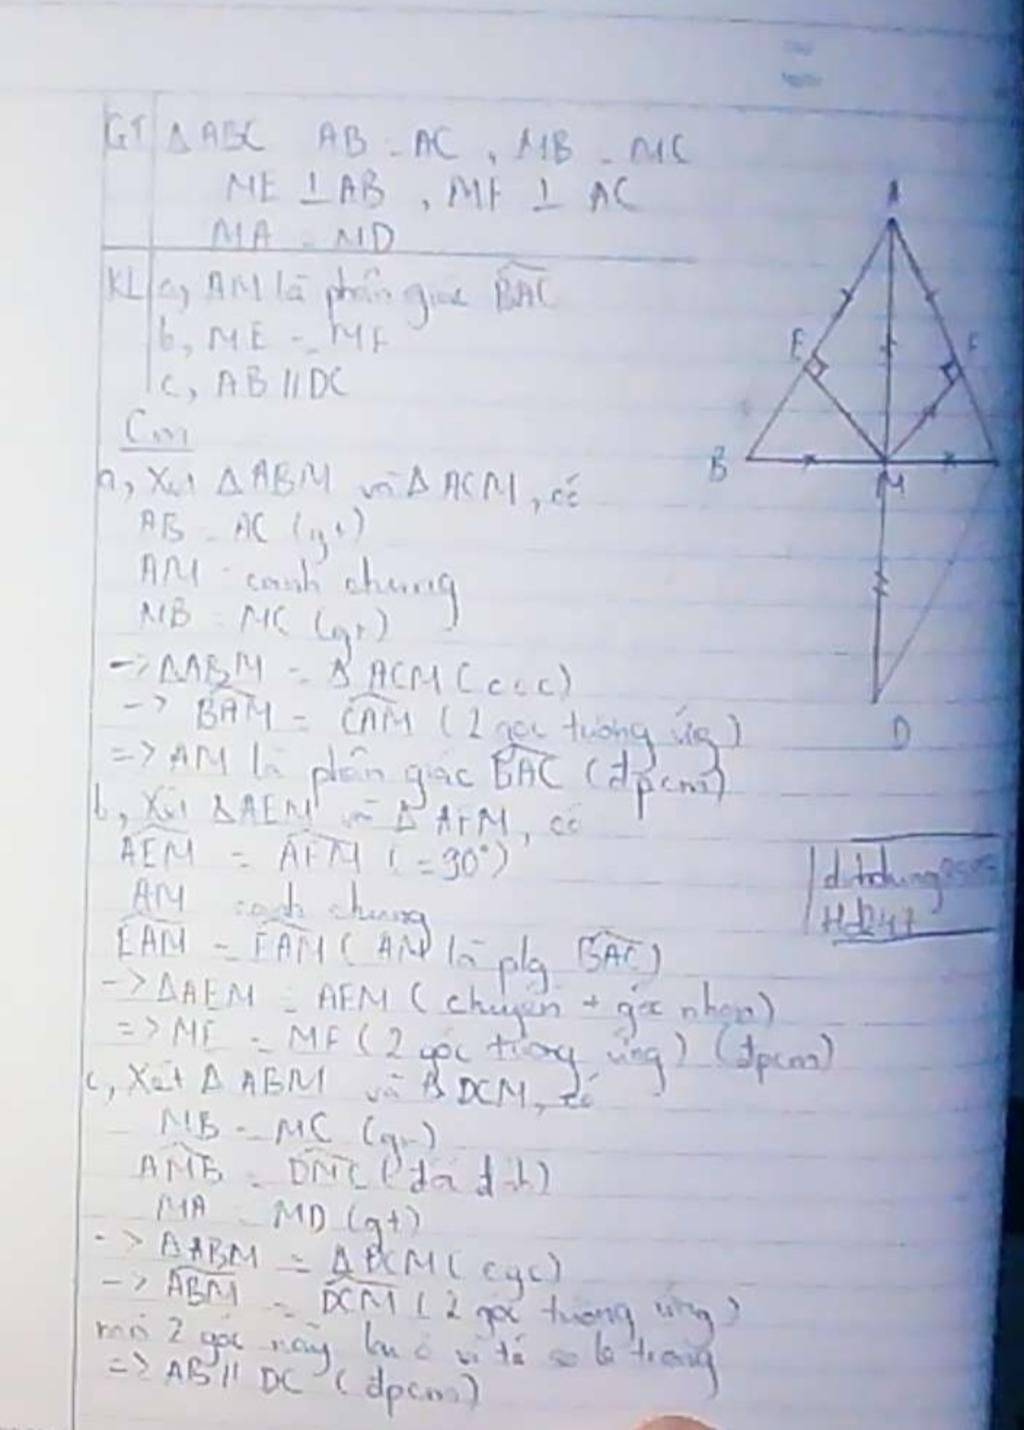 GT ΔABC AB = AC, MB = MC
ME ⊥ AB, MF ⊥ AC
MA = MD
KL a, AM là phân giác BAC
b, ME = MF
c, AB // DC
Cm
a, Xét ΔABM và ΔACM, có
AB = AC (gt)
AM cạnh chung
MB = MC (gt)
-> ΔABM = ΔACM (ccc)
-> BAM = CAM (2 góc tương ứng)
=> AM là phân giác BAC (đpcm)
b, Xét ΔAEM và ΔAFM, có
AEM = AFM (=90°)
AM cạnh chung
EAM = FAM (AM là plg BAC)
-> ΔAEM = AFM (chuyền + góc nhọn)
=> ME = MF (2 góc tương ứng) (đpcm)
c, Xét ΔABM và ΔDCM, có
MB = MC (gt)
AMB = DMC (đối đỉnh)
MA = MD (gt)
-> ΔABM = ΔDCM (cgc)
-> ABM = DCM (2 góc tương ứng)
mà 2 góc này lại ở vị trí so le trong
=> AB // DC (đpcm)
A
E
F
B
M
D